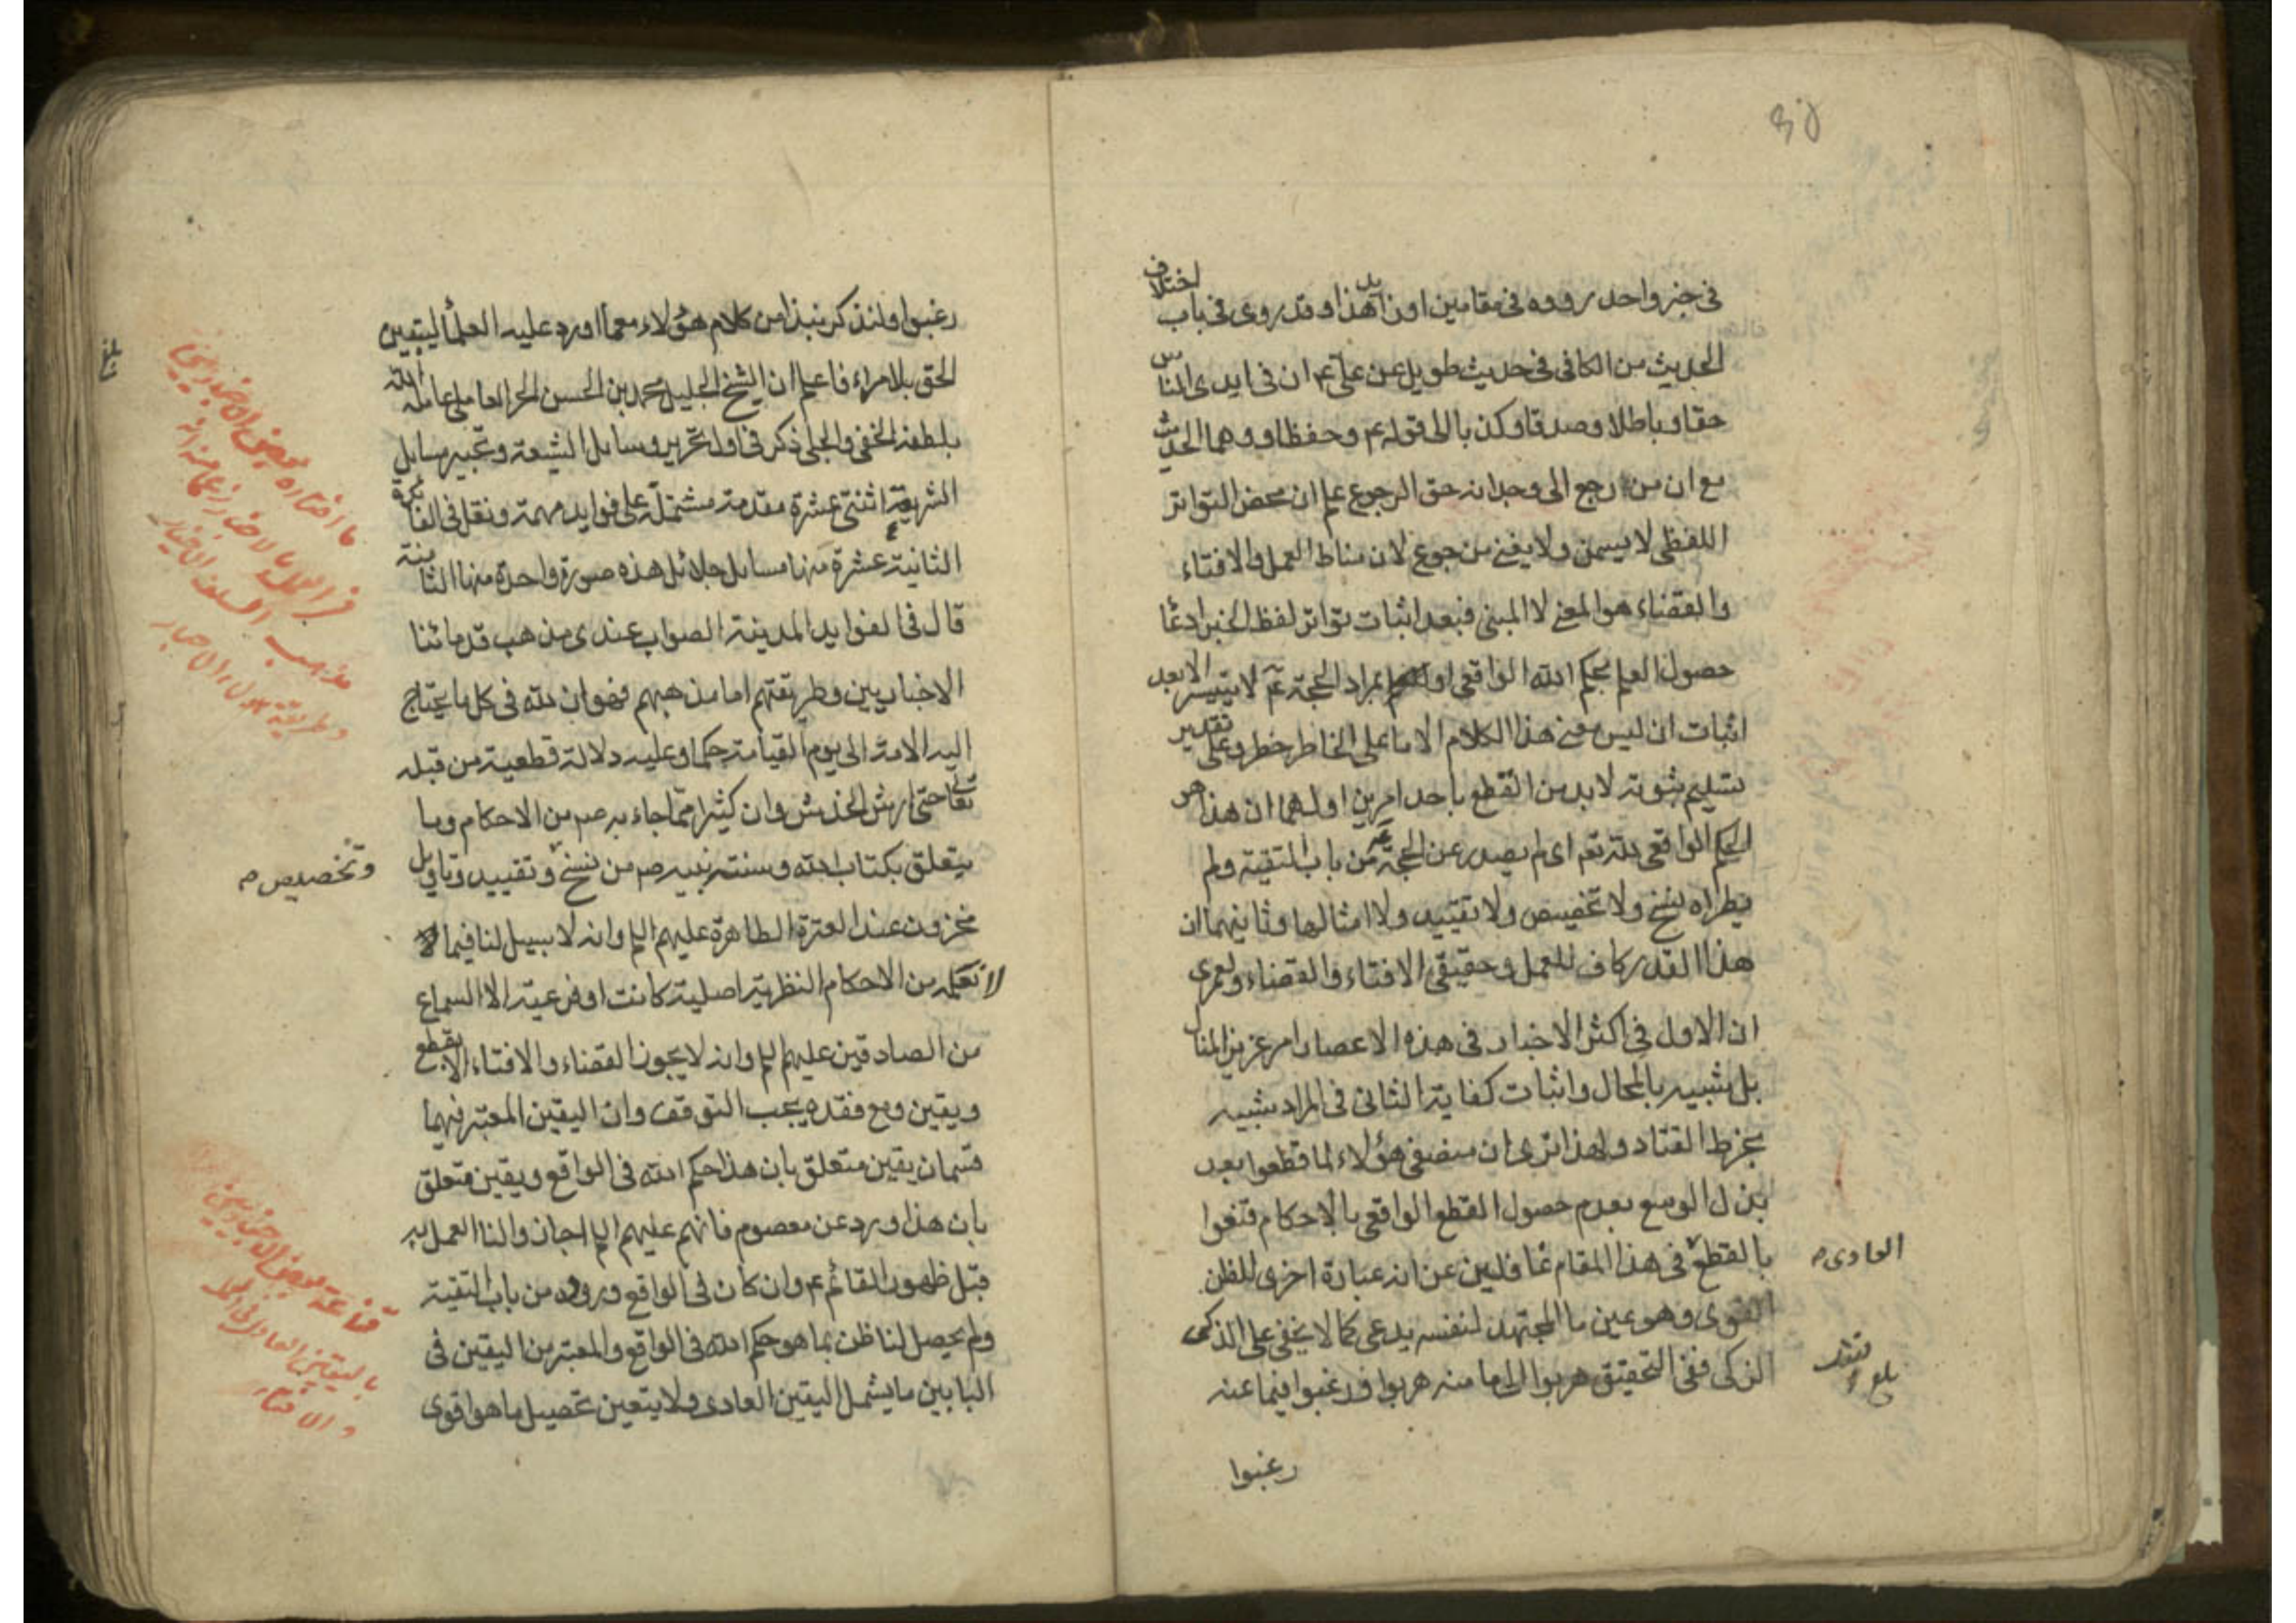 في خبر واحد رووه في مقامين اون بدل هذا وقد روى في باب اختلاف
الحديث من الكافي في حديث طويل عن علي ع ان في ايدى الناس
حقا وباطلا وصدقا وكذبا الى قوله ع وحفظا ووهما الحديث
مع ان من رجع الى وجدانه حق الرجوع علم ان محض التواتر
اللفظى لا يسمن ولا يغنى من جوع لان مناط العمل والافتاء
والقضاء هو المعنى لا المبنى فبعد اثبات تواتر لفظ الخبر ادعا
حصول العلم بحكم الله الواقعى او بمراد الحجة ع لا يتيسر الا بعد
اثبات ان ليس معنى هذا الكلام الا ما على الخاطر خطر وعلى تقدير
تسليم ثبوته لا بد من القطع باحد امرين اولهما ان هذا هو
الحكم الواقعى لله تعم اى لم يصدر عن الحجة ع من باب التقية ولم
يطراه نسخ ولا تخصيص ولا تقييد ولا امثالها وثانيهما ان
هذا القدر كاف للعمل وحقيقى الافتاء والقضاء ولعمرى
ان الاول في اكثر الاخبار في هذه الاعصار امر عزيز المنال
بل شبيه بالمحال واثبات كفاية الثانى في المراد شبيه
بخرط القتاد ولهذا ترى ان منصفى هؤلاء لما قطعوا بعد
بذل الوسع بعدم حصول القطع الواقعى بالاحكام قنعوا
بالقطع في هذا المقام غافلين عن انه عبارة اخرى للظن
العادى م
القوى وهو عين ما المجتهد لنفسه يدعى كما لا يخفى على الذكى
الزكى ففى التحقيق هربوا الى ما منه هربوا ورغبوا فيما عنه
بلغ
رغبوا
رغبوا ولنذكر نبذا من كلام هؤلاء مع ما اورد عليه العلماء ليتبين
الحق بلا مراء فاعلم ان الشيخ الجليل محمد بن الحسن الحر العاملى عامله الله
بلطفه الخفى والجلى ذكر في اول تحرير وسايل الشيعة وتحبير مسايل
الشريعة اثنتى عشرة مقدمة مشتملة على فوايد مهمة ونقل في الفائدة
الثانية عشرة منها مسايل جلائل هذه صورة واحدة منها الثامنة
قال في الفوايد المدينة الصواب عندى مذهب قدمائنا
الاخباريين وطريقتهم اما مذهبهم فهو ان لله في كل ما يحتاج
اليه الامة الى يوم القيامة حكما وعليه دلالة قطعية من قبله
تعالى حتى ارش الخدش وان كثيرا مما جاء به ص من الاحكام وما
يتعلق بكتاب الله وسنة نبيه ص من نسخ وتقييد وتاويل
وتخصيص م
مخزون عند العترة الطاهرة عليهم السلم وانه لا سبيل لنا فيما
لا نعلمه من الاحكام النظرية اصلية كانت او فرعية الا السماع
من الصادقين عليهم السلم وانه لا يجوز القضاء والافتاء الا بقطع
ويقين ومع فقده يجب التوقف وان اليقين المعتبر فيهما
قسمان يقين متعلق بان هذا حكم الله في الواقع ويقين متعلق
بان هذا ورد عن معصوم فانهم عليهم السلم اجازوا لنا العمل به
قبل ظهور القائم ع وان كان في الواقع وروده من باب التقية
ولم يحصل لنا ظن بما هو حكم الله في الواقع والمعتبر من اليقين في
البابين ما يشمل اليقين العادى ولا يتعين تحصيل ما هو اقوى
بلغ
ما اختاره بعض الاخباريين
مذهب السلف الاخيار
وطريقة هؤلاء الاحبار
قناعة بعض الاخباريين
باليقين العادى في العمل
والافتاء